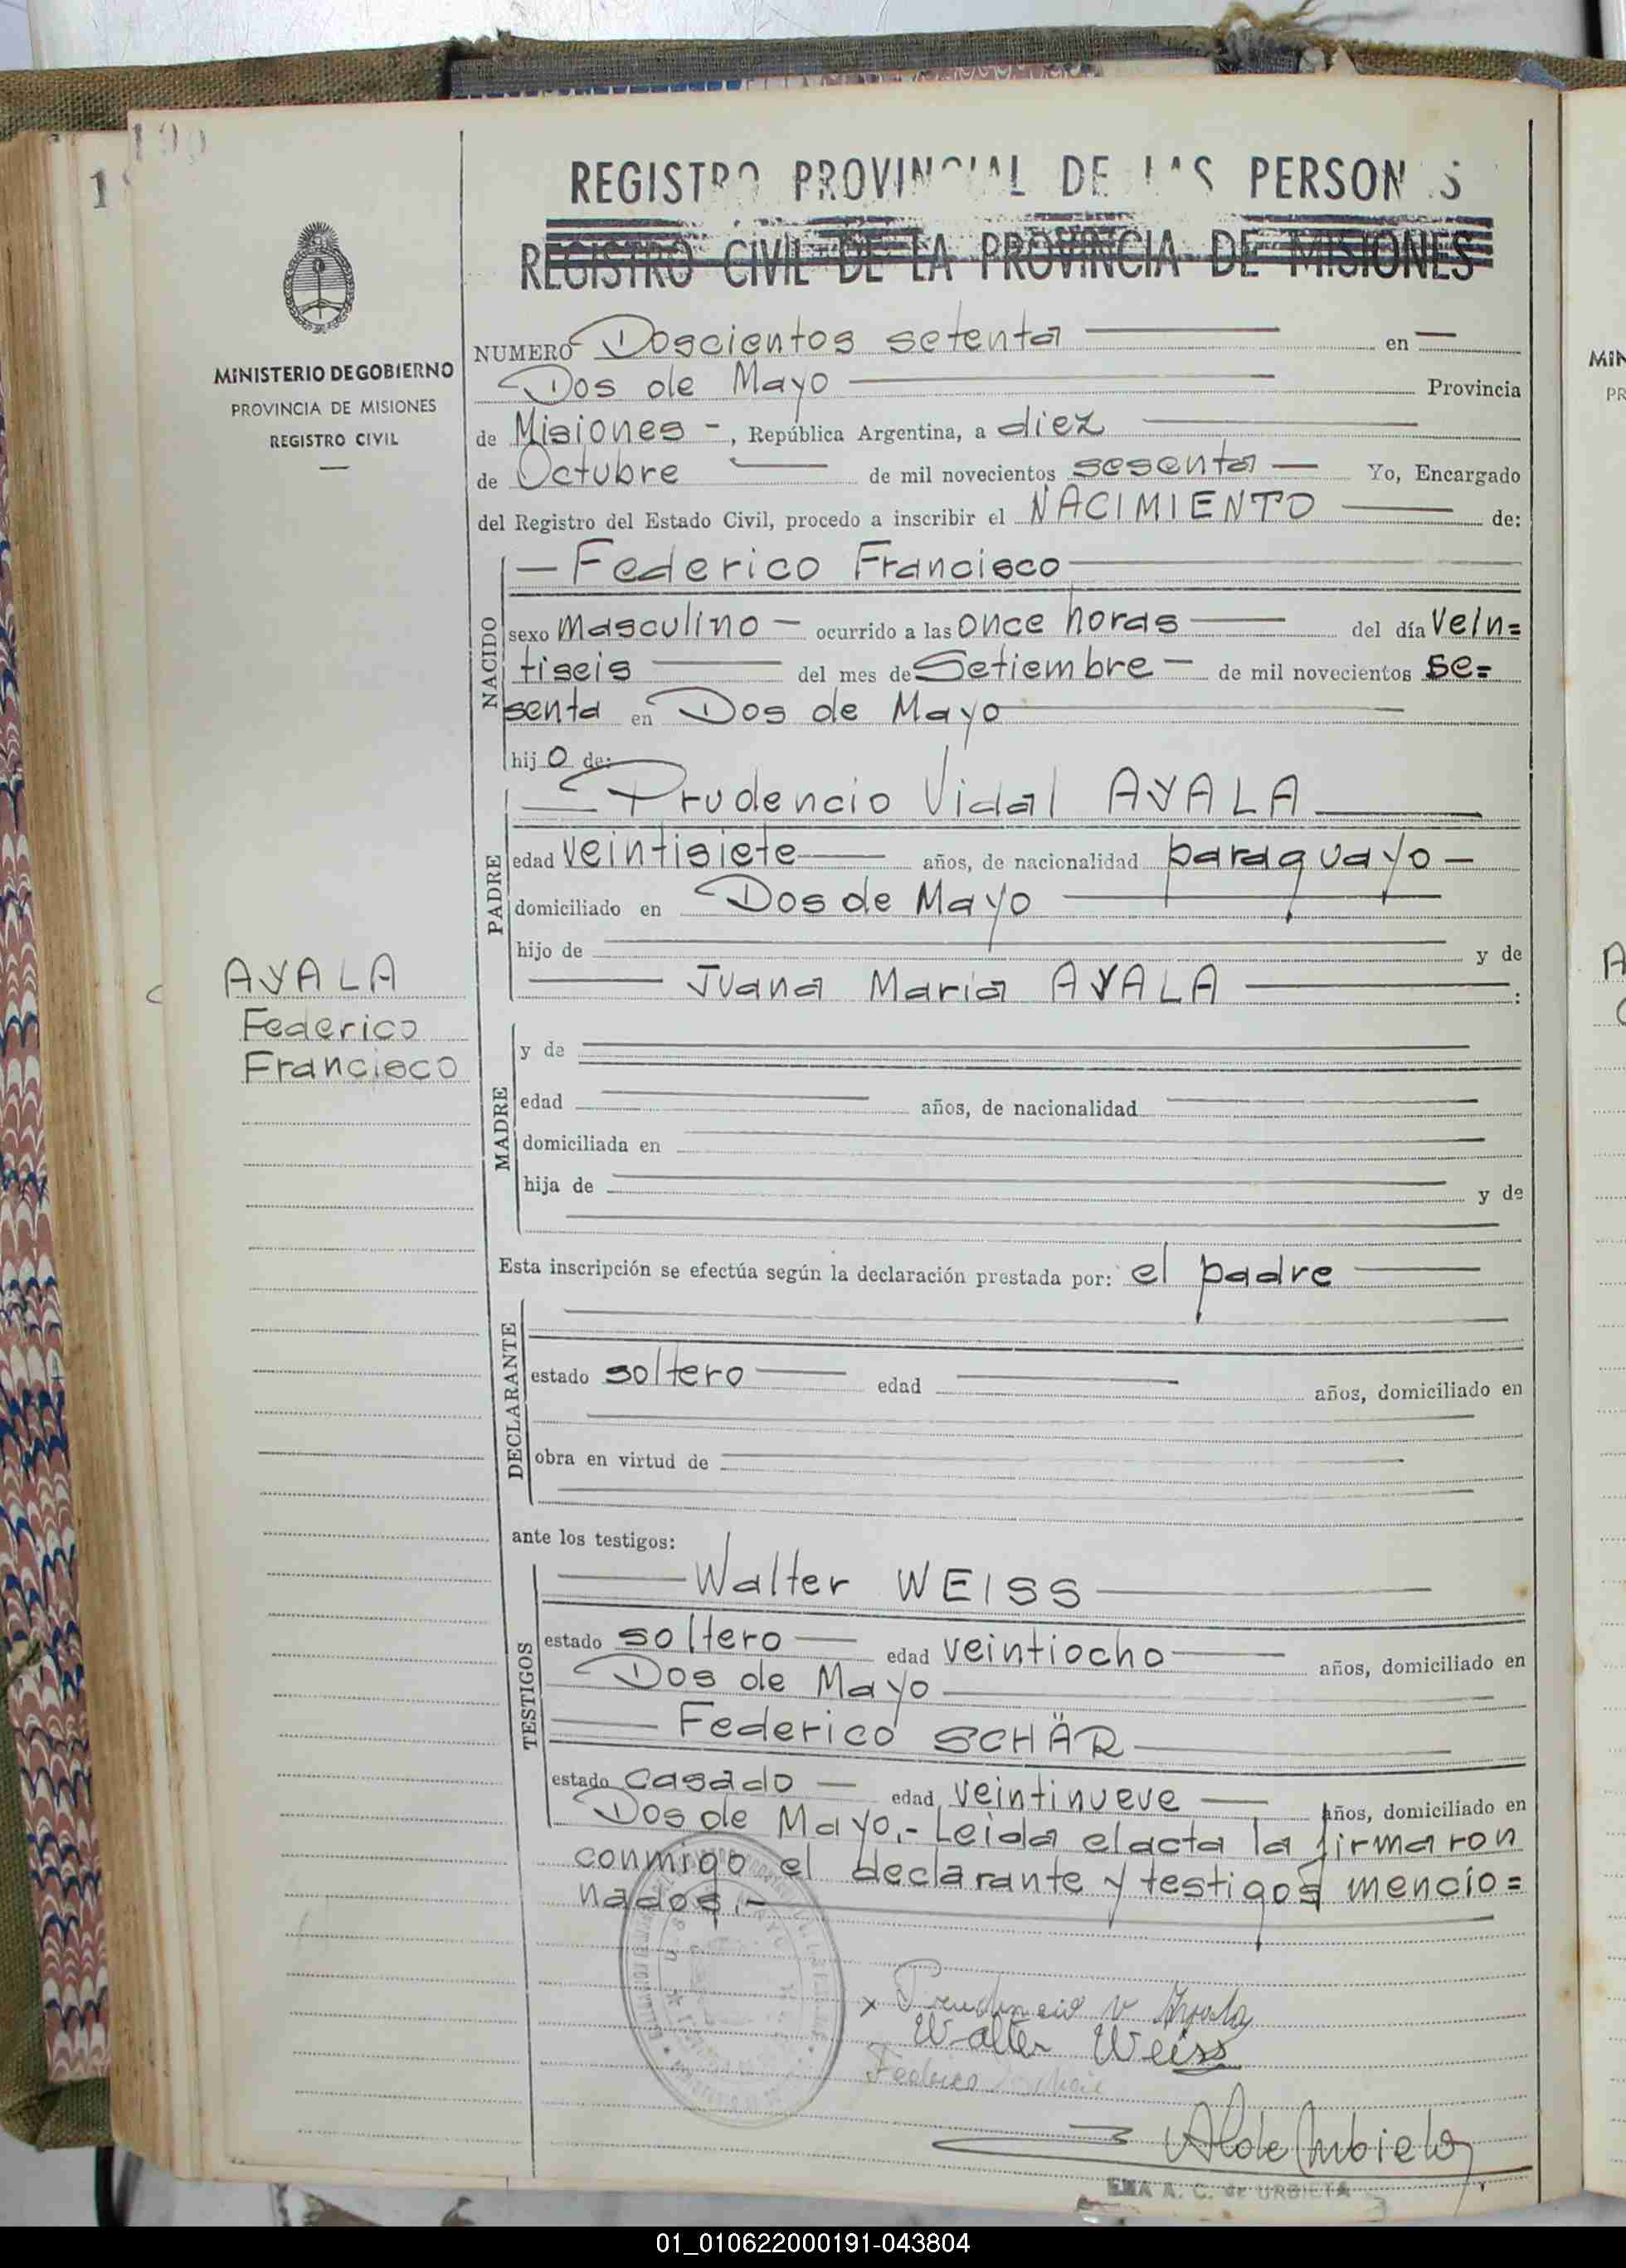 190
REGISTRO PROVINCIAL DE LAS PERSONAS
REGISTRO CIVIL DE LA PROVINCIA DE MISIONES
MINISTERIO DE GOBIERNO
PROVINCIA DE MISIONES
REGISTRO CIVIL
NUMERO Doscientos setenta en
Dos de Mayo Provincia
de Misiones -, República Argentina, a diez
de Octubre de mil novecientos sesenta Yo, Encargado
del Registro del Estado Civil, procedo a inscribir el NACIMIENTO de:
NACIDO
Federico Francisco
sexo masculino - ocurrido a las once horas del día vein=
tiseis del mes de Setiembre - de mil novecientos se=
senta en Dos de Mayo
hij o de:
PADRE
Prudencio Vidal AYALA
edad veintisiete años, de nacionalidad paraguayo -
domiciliado en Dos de Mayo
hijo de y de
Juana Maria AYALA :
AYALA
Federico
Francisco
MADRE
y de
edad años, de nacionalidad
domiciliada en
hija de y de
Esta inscripción se efectúa según la declaración prestada por: el padre
DECLARANTE
estado soltero edad años, domiciliado en
obra en virtud de
ante los testigos:
TESTIGOS
Walter WEISS
estado soltero edad veintiocho años, domiciliado en
Dos de Mayo
Federico SCHÄR
estado casado edad veintinueve años, domiciliado en
Dos de Mayo.- Leida el acta la firmaron
conmigo el declarante y testigos mencio=
nados.-
x Prudencio v Ayala
Walter Weiss
Federico
EMA A. C. de URBIETA
01_010622000191-043804